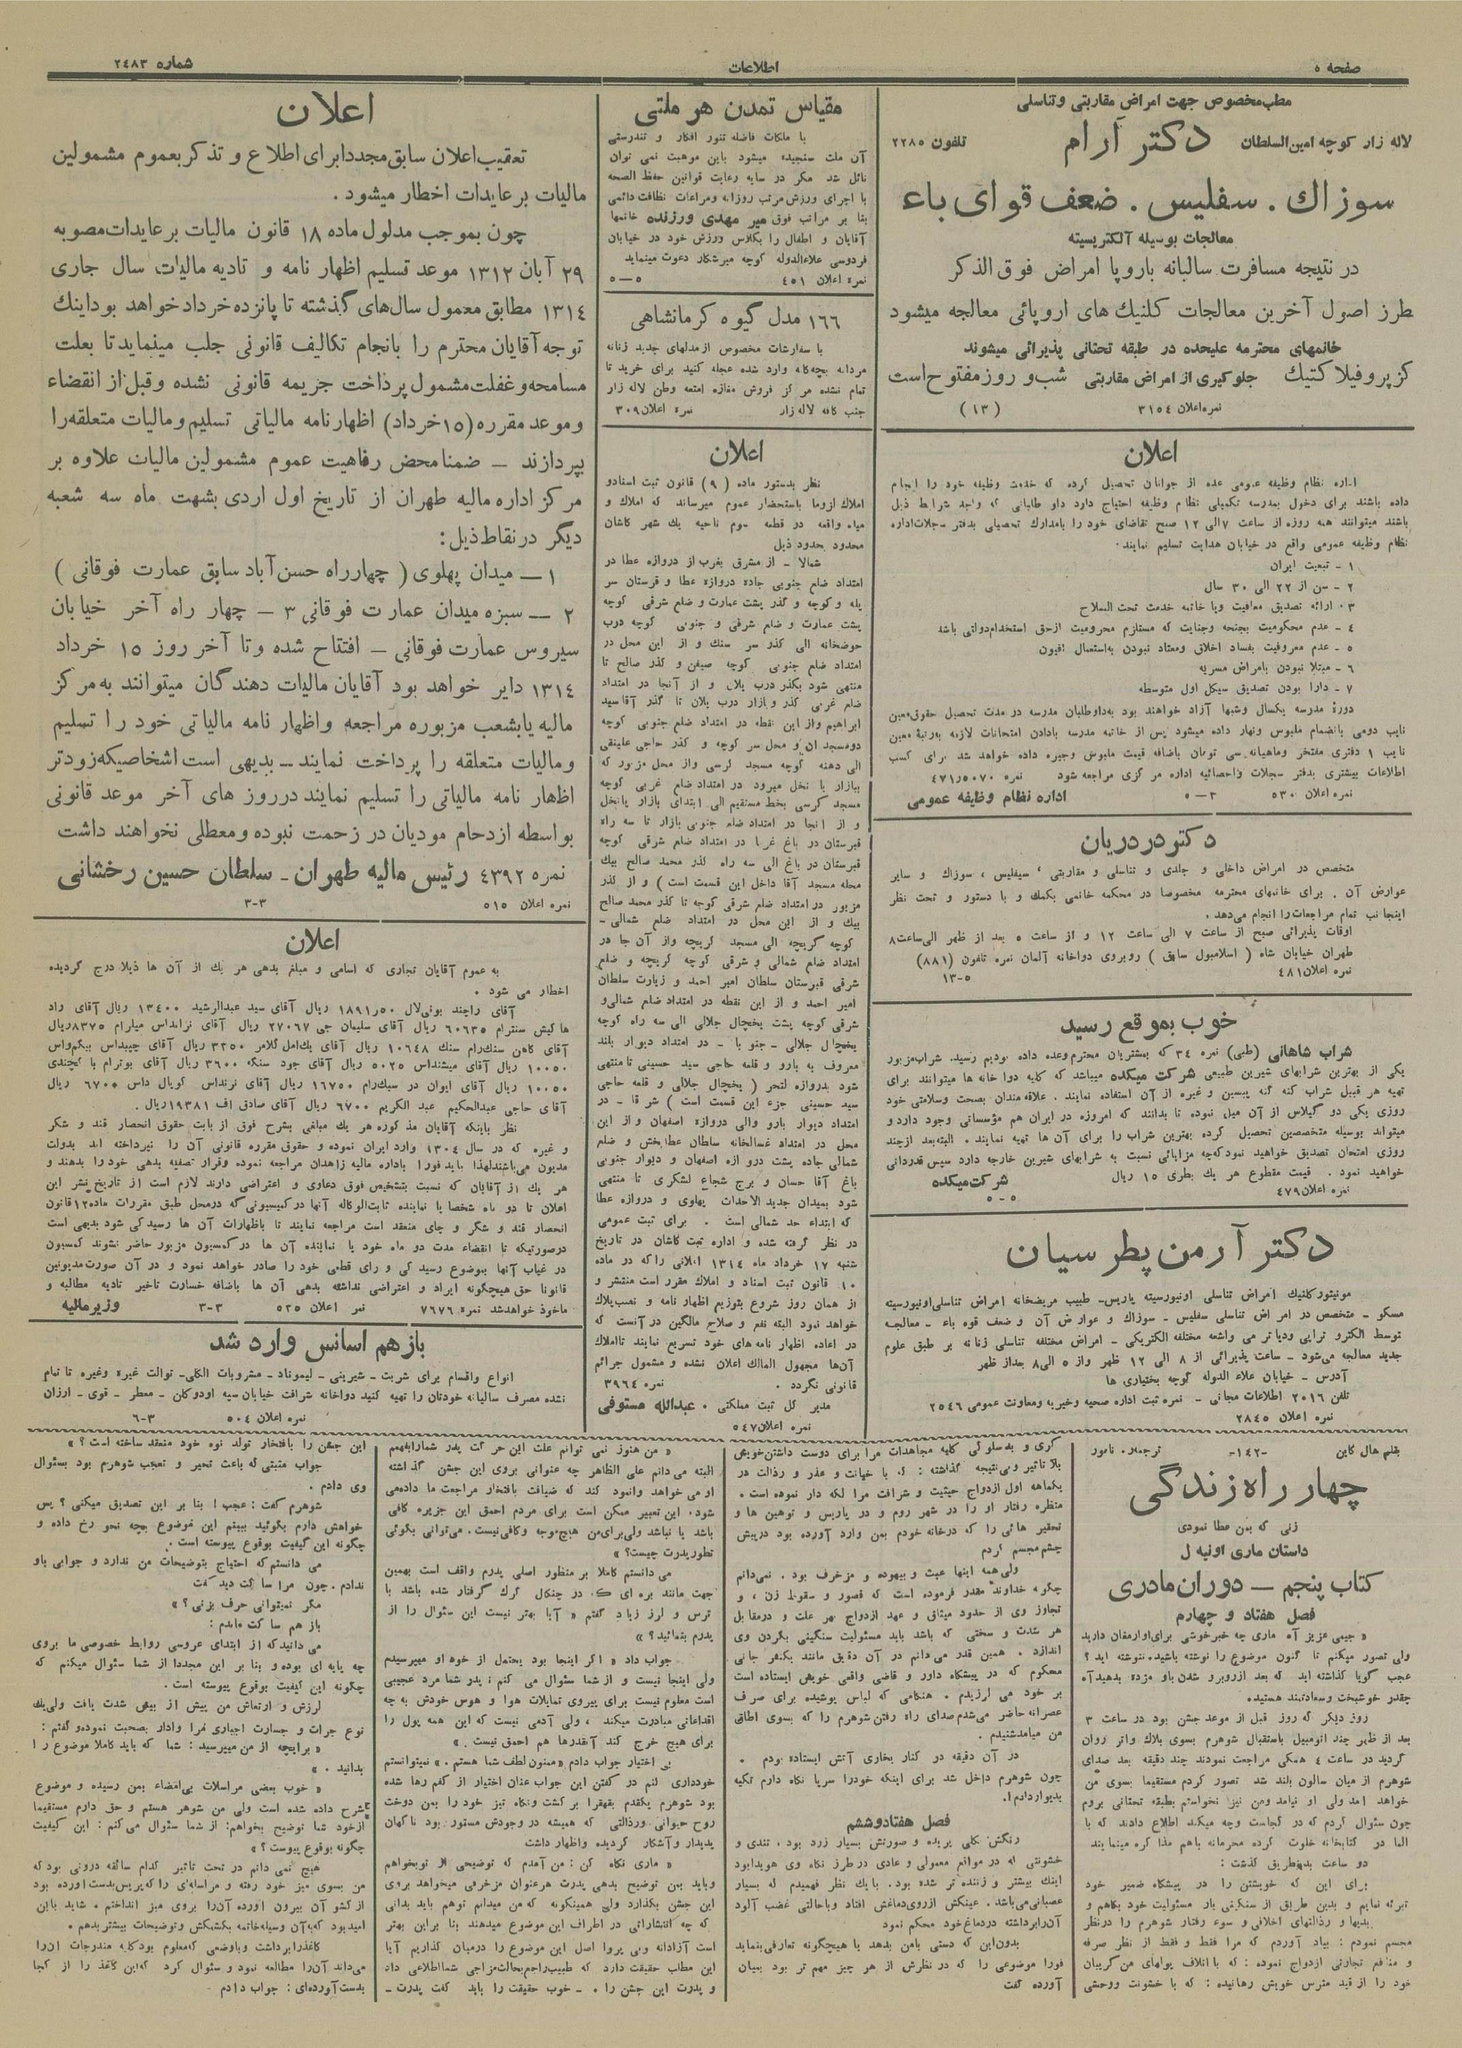 صفحه ٥
اطلاعات
شماره ٢٤٨٣
مطب مخصوص جهت امراض مقاربتی و تناسلی
لاله زار کوچه امین السلطان دکتر آرام تلفون ٢٢٨٥
سوزاك . سفلیس . ضعف قوای باء
معالجات بوسیله آلکتریسیته
در نتیجه مسافرت سالیانه باروپا امراض فوق الذکر
طرز اصول آخرین معالجات کلنیك های اروپائی معالجه میشود
خانمهای محترمه علیحده در طبقه تحتانی پذیرائی میشوند
کز پروفیلاکتیك جلوگیری از امراض مقاربتی شب و روز مفتوح است
نمره اعلان ٣١٥٤ (١٣)
اعلان
اداره نظام وظیفه عمومی عده از جوانان تحصیل کرده که خدمت وظیفه خود را انجام
داده باشند برای دخول بمدرسه تکمیلی نظام وظیفه احتیاج دارد داو طلبانی که واجد شرایط ذیل
باشند میتوانند همه روزه از ساعت ٧ الی ١٢ صبح تقاضای خود را بامدارك تحصیلی بدفتر سجلات اداره
نظام وظیفه عمومی واقع در خیابان هدایت تسلیم نمایند.
١ - تبعیت ایران
٢ - سن از ٢٢ الی ٣٠ سال
٣ - ارائه تصدیق معافیت ویا خاتمه خدمت تحت السلاح
٤ - عدم محکومیت بجنحه وجنایت که مستلزم محرومیت ازحق استخدام دولتی باشد
٥ - عدم معروفیت بفساد اخلاق ومعتاد نبودن به استعمال افیون
٦ - مبتلا نبودن بامراض مسریه
٧ - دارا بودن تصدیق سیکل اول متوسطه
دورهٔ مدرسه یکسال وشبها آزاد خواهند بود به داوطلبان مدرسه در مدت تحصیل حقوق معین
نایب دومی بانضمام ملبوس ونهار داده میشود پس از خاتمه مدرسه بادادن امتحانات لازمه به رتبهٔ معین
نایب ١ دفتری مفتخر وماهیانه سی تومان باضافه قیمت ملبوس وجیره داده خواهد شد برای کسب
اطلاعات بیشتری بدفتر سجلات واحصائیه اداره مرکزی مراجعه شود نمره ٤٧١ر٥٠٧٠
نمره اعلان ٥٣٠ ٣-٥ اداره نظام وظیفه عمومی
دکتر دردریان
متخصص در امراض داخلی و جلدی و تناسلی و مقاربتی ، سیفلیس ، سوزاك و سایر
عوارض آن . برای خانمهای محترمه مخصوصا در محکمه خانمی بکمك و با دستور و تحت نظر
اینجانب تمام مراجعات را انجام می‌دهد.
اوقات پذیرائی صبح از ساعت ٧ الی ساعت ١٢ و از ساعت ٥ بعد از ظهر الی ساعت ٨
طهران خیابان شاه ( اسلامبول سابق ) روبروی دواخانه آلمان نمره تلفون (٨٨١)
نمره اعلان ٤٨١ ٥-١٣
خوب بموقع رسید
شراب شاهانی (طبی) نمره ٣٤ که بمشتریان محترم وعده داده بودیم رسید. شراب مزبور
یکی از بهترین شرابهای شیرین طبیعی شرکت میکده میباشد که کلیه دواخانه ها میتوانند برای
تهیه هر قبیل شراب کنه کنه پپسین و غیره از آن استفاده نمایند . علاقه مندان بصحت وسلامتی خود
روزی یکی دو گیلاس از آن میل نموده تا بدانند که امروزه در ایران هم مؤسساتی وجود دارد و
میتواند بوسیله متخصصین تحصیل کرده بهترین شراب را برای آن ها تهیه نمایند . البته بعد ازچند
روزی امتحان تصدیق خواهید نمود که چه مزایائی نسبت به شرابهای شیرین خارجه دارد سپس قدردانی
خواهید نمود . قیمت مقطوع هر یك بطری ١٥ ریال شرکت میکده
نمره اعلان ٤٧٩ ٥-٥
دکتر آرمن پطرسیان
مونیتور کلنیك امراض تناسلی اونیورسیته پاریس - طبیب مریضخانه امراض تناسلی اونیورسیته
مسکو - متخصص در امراض تناسلی سفلیس - سوزاك و عوارض آن و ضعف قوه باء - معالجه
توسط الکترو تراپی ودیاترمی واشعه مختلفه الکتریکی - امراض مختلفه تناسلی زنانه بر طبق علوم
جدید معالجه می‌شود - ساعت پذیرائی از ٨ الی ١٢ ظهر واز ٥ الی ٨ بعداز ظهر
آدرس - خیابان علاء الدوله کوچه بختیاری ها
تلفن ٢٠١٦ اطلاعات مجانی - نمره ثبت اداره صحیه وخیریه ومعاونت عمومی ٢٥٤٦
نمره اعلان ٢٨٤٥
مقیاس تمدن هر ملتی
با ملکات فاضله تنور افکار و تندرستی
آن ملت سنجیده میشود باین موهبت نمی توان
نائل شد مگر در سایه رعایت قوانین حفظ الصحه
با اجرای ورزش مرتب روزانه ومراعات نظافت دائمی
بنا بر مراتب فوق میر مهدی ورزنده خانمها
آقایان و اطفال را بکلاس ورزش خود در خیابان
فردوسی علاءالدوله کوچه میرشکار دعوت مینماید
نمره اعلان ٤٥١ ٥-٥
١٦٦ مدل گیوه کرمانشاهی
با سفارشات مخصوص ازمدلهای جدید زنانه
مردانه بچه‌گانه وارد شده عجله کنید برای خرید تا
تمام نشده مرکز فروش مغازه امتعه وطن لاله زار
جنب کافه لاله زار نمره اعلان ٣٠٩
اعلان
نظر بدستور ماده (٩) قانون ثبت اسناد و
املاك لزوما باستحضار عموم میرساند که املاك و
میاه واقعه در قطعه سوم ناحیه یك شهر کاشان
محدود بحدود ذیل
شمالا - از مشرق بغرب از دروازه عطا در
امتداد ضلع جنوبی جاده دروازه عطا و قبرستان سر
پله و کوچه و گذر پشت عمارت و ضلع شرقی کوچه
پشت عمارت و ضلع شرقی و جنوبی کوچه درب
حوضخانه الی گذر سر سنك و از این محل در
امتداد ضلع جنوبی کوچه صیفن و گذر صالح تا
منتهی شود بگذر درب یلان و از آنجا در امتداد
ضلع غربی گذر و بازار درب یلان تا گذر آقا سید
ابراهیم واز این نقطه در امتداد ضلع جنوبی کوچه
دو مسجدان و محل سر کوچه و گذر حاجی علینقی
الی دهنه کوچه مسجد کرسی واز محل مزبور که
ببازار با نخل میرود در امتداد ضلع غربی کوچه
مسجد کرسی بخط مستقیم الی ابتدای بازار پانخل
و از آنجا در امتداد ضلع جنوبی بازار تا سه راه
قبرستان در باغ غربا در امتداد ضلع شرقی کوچه
قبرستان در باغ الی سه راه گذر محمد صالح بیك
محله مسجد آقا داخل این قسمت است ) و از گذر
مزبور در امتداد ضلع شرقی کوچه تا گذر محمد صالح
بیك و از این محل در امتداد ضلع شمالی -
کوچه گریچه الی مسجد گریچه واز آن جا در
امتداد ضلع شمالی و شرقی کوچه گریچه و ضلع
شرقی قبرستان سلطان امیر احمد و زیارت سلطان
امیر احمد و از این نقطه در امتداد ضلع شمالی و
شرقی کوچه پشت یخچال جلالی الی سه راه کوچه
یخچال جلالی - جنوبا - در امتداد دیوار بلند
معروف به بارو و قلعه حاجی سید حسینی تا منتهی
شود بدروازه لتحر ( یخچال جلالی و قلعه حاجی
سید حسینی جزء این قسمت است ) شرقا - در
امتداد دیوار بارو والی دروازه اصفهان و از این
محل در امتداد غسالخانه سلطان عطابخش و ضلع
شمالی جاده پشت دروازه اصفهان و دیوار جنوبی
باغ آقا حسان و برج شجاع لشگری تا منتهی
شود بمیدان جدید الاحداث پهلوی و دروازه عطا
که ابتداء حد شمالی است . برای ثبت عمومی
در نظر گرفته شده و اداره ثبت کاشان در تاریخ
شنبه ١٧ خرداد ماه ١٣١٤ اعلانی را که در ماده
١٠ قانون ثبت اسناد و املاك مقرر است منتشر و
از همان روز شروع بتوزیع اظهار نامه و نصب پلاك
خواهد نمود البته نفع و صلاح مالکین در آنست که
در اعاده اظهار نامه های خود تسریع نمایند تا املاك
آن‌ها مجهول المالك اعلان نشده و مشمول جرائم
قانونی نگردد . نمره ٣٩٦٤
مدیر کل ثبت مملکتی . عبدالله مستوفی
نمره اعلان ٥٤٧
اعلان
تعقیب اعلان سابق مجددا برای اطلاع و تذکر بعموم مشمولین
مالیات بر عایدات اخطار میشود.
چون بموجب مدلول ماده ١٨ قانون مالیات بر عایدات مصوبه
٢٩ آبان ١٣١٢ موعد تسلیم اظهار نامه و تادیه مالیات سال جاری
١٣١٤ مطابق معمول سال‌های گذشته تا پانزده خرداد خواهد بود اینك
توجه آقایان محترم را بانجام تکالیف قانونی جلب مینماید تا بعلت
مسامحه و غفلت مشمول پرداخت جریمه قانونی نشده و قبل از انقضاء
و موعد مقرره (١٥ خرداد) اظهار نامه مالیاتی تسلیم و مالیات متعلقه را
بپردازند - ضمنا محض رفاهیت عموم مشمولین مالیات علاوه بر
مرکز اداره مالیه طهران از تاریخ اول اردی بهشت ماه سه شعبه
دیگر در نقاط ذیل:
١ - میدان پهلوی ( چهارراه حسن آباد سابق عمارت فوقانی )
٢ - سبزه میدان عمارت فوقانی ٣ - چهار راه آخر خیابان
سیروس عمارت فوقانی - افتتاح شده و تا آخر روز ١٥ خرداد
١٣١٤ دایر خواهد بود آقایان مالیات دهندگان میتوانند به مرکز
مالیه یا بشعب مزبوره مراجعه و اظهار نامه مالیاتی خود را تسلیم
و مالیات متعلقه را پرداخت نمایند - بدیهی است اشخاصیکه زودتر
اظهار نامه مالیاتی را تسلیم نمایند در روز های آخر موعد قانونی
بواسطه ازدحام مودیان در زحمت نبوده و معطلی نخواهند داشت
نمره ٤٣٩٢ رئیس مالیه طهران - سلطان حسین رخشانی
نمره اعلان ٥١٥ ٣-٣
اعلان
به عموم آقایان تجاری که اسامی و مبلغ بدهی هر یك از آن ها ذیلا درج گردیده
اخطار می شود .
آقای راچند بونی‌لال ٥٠ر١٨٩١ ریال آقای سید عبدالرشید ١٣٤٠٠ ریال آقای راد
هاکیش سنترام ٦٠٦٣٥ ریال آقای سلیمان جی ٢٧٠٦٧ ریال آقای نرانداس میلرام ٨٣٧٥ ریال
آقای کاهن سنك‌رام سنك ١٠٦٤٨ ریال آقای یك‌امل گلامر ٣٢٥٠ ریال آقای چیپداس بیکم‌واس
١٠٠٥٠ ریال آقای میشنداس ٥٠٢٥ ریال آقای جود سنکه ٣٦٠٠ ریال آقای بوترام با کچندی
١٠٠٥٠ ریال آقای ایوان در سیك‌رام ١٦٧٥٠ ریال آقای نرنداس کوپال داس ٦٧٠٠ ریال
آقای حاجی عبدالحکیم عبد الکریم ٦٧٠٠ ریال آقای صادق اف ١٩٣٨١ ریال .
نظر باینکه آقایان مذکوره هر یك مبالغی بشرح فوق از بابت حقوق انحصار قند و شکر
و غیره که در سال ١٣٠٤ وارد ایران نموده و حقوق مقرره قانونی آن را نپرداخته اند بدولت
مدیون می‌باشند لهذا باید فورا باداره مالیه زاهدان مراجعه نموده وقرار تصفیه بدهی خود را بدهند و
هر یك از آقایان که نسبت بتشخیص فوق دعاوی و اعتراضی دارند لازم است از تاریخ نشر این
اعلان تا دو ماه شخصا یا نماینده ثابت‌الوکاله آنها در کمیسیونی که درمحل طبق مقررات ماده ١٢ قانون
انحصار قند و شکر و چای منعقد است مراجعه نمایند تا باظهارات آن ها رسیدگی شود بدیهی است
درصورتیکه تا انقضاء مدت دو ماه خود یا نماینده آن ها در کمسیون مزبور حاضر نشوند کمسیون
در غیاب آنها بموضوع رسیدگی و رای قطعی خود را صادر خواهد نمود و در آن صورت مدیونین
قانونا حق هیچگونه ایراد و اعتراضی نداشته بدهی آن ها باضافه خسارت تاخیر تادیه مطالبه و
ماخوذ خواهد شد نمره ٧٦٧٦ نمره اعلان ٥٢٥ ٣-٣ وزیر مالیه
باز هم اسانس وارد شد
انواع واقسام برای شربت - شیرینی - لیموناد - مشروبات الکلی - توالت غیره وغیره تا تمام
نشده مصرف سالیانه خودتان را تهیه کنید دواخانه شرافت خیابان سپه اودوکلن - معطر - قوی - ارزان
نمره اعلان ٥٠٤ ٣-٦
بقلم هال کاین -١٤٢- ترجمه‌ء نامور
چهار راه زندگی
زنی که بمن عطا نمودی
داستان ماری اونیه ل
کتاب پنجم - دوران مادری
فصل هفتاد و چهارم
« جیمی عزیز آه ماری چه خبر خوشی برای او ارمغان دارید
ولی تصور میکنم تا کنون موضوع را نوشته باشید. ننوشته اید ؟
عجب گویا گذاشته اید که بعد ازروبرو شدن باو مژده بدهید آه
چقدر خوشبخت وسعادتمند هستید.
روز دیگر که روز قبل از موعد جشن بود در ساعت ٣
بعد از ظهر چند اتومبیل باستقبال شوهرم بسوی بلاك واتر روان
گردید در ساعت ٤ همگی مراجعت نمودند چند دقیقه بعد صدای
شوهرم از میان سالون بلند شد تصور کردم مستقیما بسوی من
خواهد آمد ولی او نیامد ومن نیز نخواستم بطبقه تحتانی بروم
چون سئوال کردم که در کجاست وچه میکند اطلاع دادند که با
الما در کتابخانه خلوت کرده محرمانه باهم مذاکره مینمایند
دو ساعت بدینطریق گذشت :
برای این که خویشتن را در پیشگاه ضمیر خود
تبرئه نمایم و بدین طریق از سنگینی بار مسئولیت خود بکاهم و
بدیها و رذالتهای اخلاقی و سوء رفتار شوهرم را در نظر
مجسم نمودم : بیاد آوردم که مرا فقط و فقط از نظر صرفه
و منافع تجارتی ازدواج نموده : که با اتلاف پولهای من گریبان
خود را از قید مترس خویش رهانیده : که با خشونت ووحشی
گری و به سلوکی کلیه مجاهدات مرا برای دوست داشتن خویش
بلا تاثیر وبی‌نتیجه گذاشته : که با خیانت و غدر و رذالت در
یکماهه اول ازدواج حیثیت و شرافت مرا لکه دار نموده است .
منظره رفتار او را در شهر روم و در پاریس و توهین ها و
تحقیر هائی را که درخانه خودم بمن وارد آورده بود درپیش
چشم مجسم کردم
ولی همه اینها عبث و بیهوده و مزخرف بود . نمی‌دانم
چگونه خداوند مقدر فرموده است که قصور و سقوط زن ، و
تجاوز وی از حدود میثاق و عهد ازدواج بهر علت و درمقابل
هر شدت و سختی که باشد باید مسئولیت سنگینی بگردن وی
اندازد . همین قدر می‌دانم در آن دقایق مانند یکنفر جانی
محکوم که در پیشگاه داور و قاضی واقعی خویش ایستاده است
بر خود می لرزیدم . هنگامی که لباس پوشیده برای صرف
عصرانه حاضر می‌شدم صدای راه رفتن شوهرم را که بسوی اطاق
من میامد شنیدم .
در آن دقیقه در کنار بخاری آتش ایستاده بودم .
چون شوهرم داخل شد برای اینکه خودرا سرپا نگاه دارم تکیه
بدیوار دادم .
فصل هفتاد و ششم
رنگش بکلی پریده و صورتش بسیار زرد بود . تندی و
خشونتی که در مواقع معمولی و عادی در طرز نگاه وی هویدا بود
اینك بیشتر و زننده تر شده بود . با یك نظر فهمیدم که بسیار
عصبانی می‌باشد . عینکش ازروی دماغش افتاد وباحالتی غضب آلود
آن‌را برداشته در دماغ خود محکم نمود
بدون این که دستی بامن بدهد یا هیچگونه تعارفی بنماید
فورا موضوعی را که در نظرش از هر چیز مهم تر بود بمیان
آورده گفت
« من هنوز نمی توانم علت این حرکت پدر شما را بفهمم
البته می‌دانم علی الظاهر چه عنوانی بروی این جشن گذاشته
او می خواهد وانمود کند که ضیافت بافتخار مراجعت ما داده می
شود. این تعبیر ممکن است برای مردم احمق این جزیره کافی
باشد یا نباشد ولی برای من هیچ موجه و کافی نیست. می‌توانی بگوئی
تطور پدرت چیست؟ »
می دانستم کاملا بر منظور اصلی پدرم واقف است بهمین
جهت مانند بره ای که در چنگال گرگ گرفتار شده باشد با
ترس و لرز زیاد گفتم « آیا بهتر نیست این سئوال را از
پدرم بنمائید؟ »
جواب داد « اگر اینجا بود یحتمل از خود او میپرسیدم
ولی اینجا نیست و از شما سئوال می کنم : پدر شما مرد عجیبی
است معلوم نیست برای پیروی تمایلات هوا و هوس خودش به چه
اقداماتی مبادرت میکند ، ولی آدمی نیست که این همه پول را
برای هیچ خرج کند آنقدرها هم احمق نیست. »
بی اختیار جواب دادم « ممنون لطف شما هستم . » نمیتوانستم
خودداری کنم در گفتن این جواب عنان اختیار از کفم رها شده
بود شوهرم یکقدم بقهقرا برگشت ونگاه تیز خود را بمن دوخت
روح حیوانی ورذالتی که همیشه در وجودش مستور بود ناگهان
پدیدار وآشکار گردیده واظهار داشت
« ماری نگاه کن : من آمدم که توضیحی از تو بخواهم
وباید بمن توضیح بدهی پدرت هر عنوان مزخرفی میخواهد بروی
این جشن بگذارد ولی همینگونه که من میدانم توهم باید بدانی
که چه انتشاراتی در اطراف این موضوع میدهند بنا براین بهتر
است آزادانه و بی پروا اصل این موضوع را درمیان گذاریم آیا
این مطلب حقیقت دارد که طبیب راجع بحالت مزاجی شما اطلاعی داد
و پدرت این جشن را . - خوب حقیقت را باید گفت پدرت -
این جشن را بافتخار تولد نوه خود منعقد ساخته است ؟ »
جواب مثبتی که باعث تحیر و تعجب شوهرم بود بسئوال
وی دادم .
شوهرم گفت : عجب ! بنا بر این تصدیق میکنی ؟ پس
خواهش دارم بگوئید ببینم این موضوع بچه نحو رخ داده و
چگونه این کیفیت بوقوع پیوسته است .
می دانستم که احتیاج بتوضیحات من ندارد و جوابی باو
ندادم . چون مرا ساکت دید گفت
مگر نمیتوانی حرف بزنی ؟ »
باز هم ساکت ماندم :
می دانید که از ابتدای عروسی روابط خصوصی ما بروی
چه پایه ای بوده و بنا بر این مجددا از شما سئوال میکنم که
چگونه این کیفیت بوقوع پیوسته است .
لرزش و ارتعاش من بیش از پیش شدت یافت ولی یك
نوع جرات و جسارت اجباری مرا وادار بصحبت نموده وگفتم :
« برایچه از من میپرسید : شما که باید کاملا موضوع را
بدانید . »
« خوب بعضی مراسلات بی‌امضاء بمن رسیده و موضوع
شرح داده شده است ولی من شوهر هستم و حق دارم مستقیما
ازخود شما توضیح بخواهم : از شما سئوال می‌کنم : این کیفیت
چگونه بوقوع پیوست ؟ »
هیچ نمی دانم در تحت تاثیر کدام سائقه درونی بود که
من بسوی میز خود رفته و مراسله‌ای را که پریس بدست آورده بود
از کشو آن بیرون آورده آن‌را بروی میز انداختم . شاید باین
امید بود که به آن وسیله خاتمه بکشمکش وتوضیحات بیشتر بدهم .
کاغذ را برداشت و باوضعی که معلوم بود کلیه مندرجات آن را
می‌داند آن‌را مطالعه نمود و سئوال کرد که این کاغذ را از کجا
بدست آورده‌ای : جواب دادم